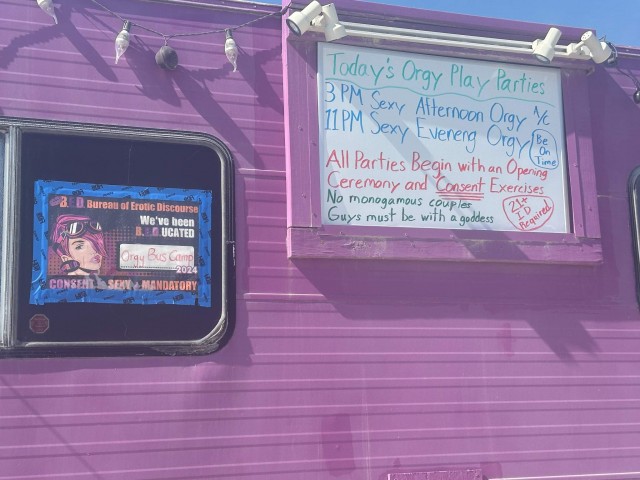 B.E.D Bureau of Erotic Discourse
We've been
B.E.D.UCATED
Orgy Bus Camp
2024
CONSENT is SEXY & MANDATORY
Today's Orgy Play Parties
3 PM Sexy Afternoon Orgy A/C
11 PM Sexy Eveneng Orgy
Be
On
Time
All Parties Begin with an Opening
Ceremony and Consent Exercises
No monogamous couples
Guys must be with a goddess
21+
I.D
Required